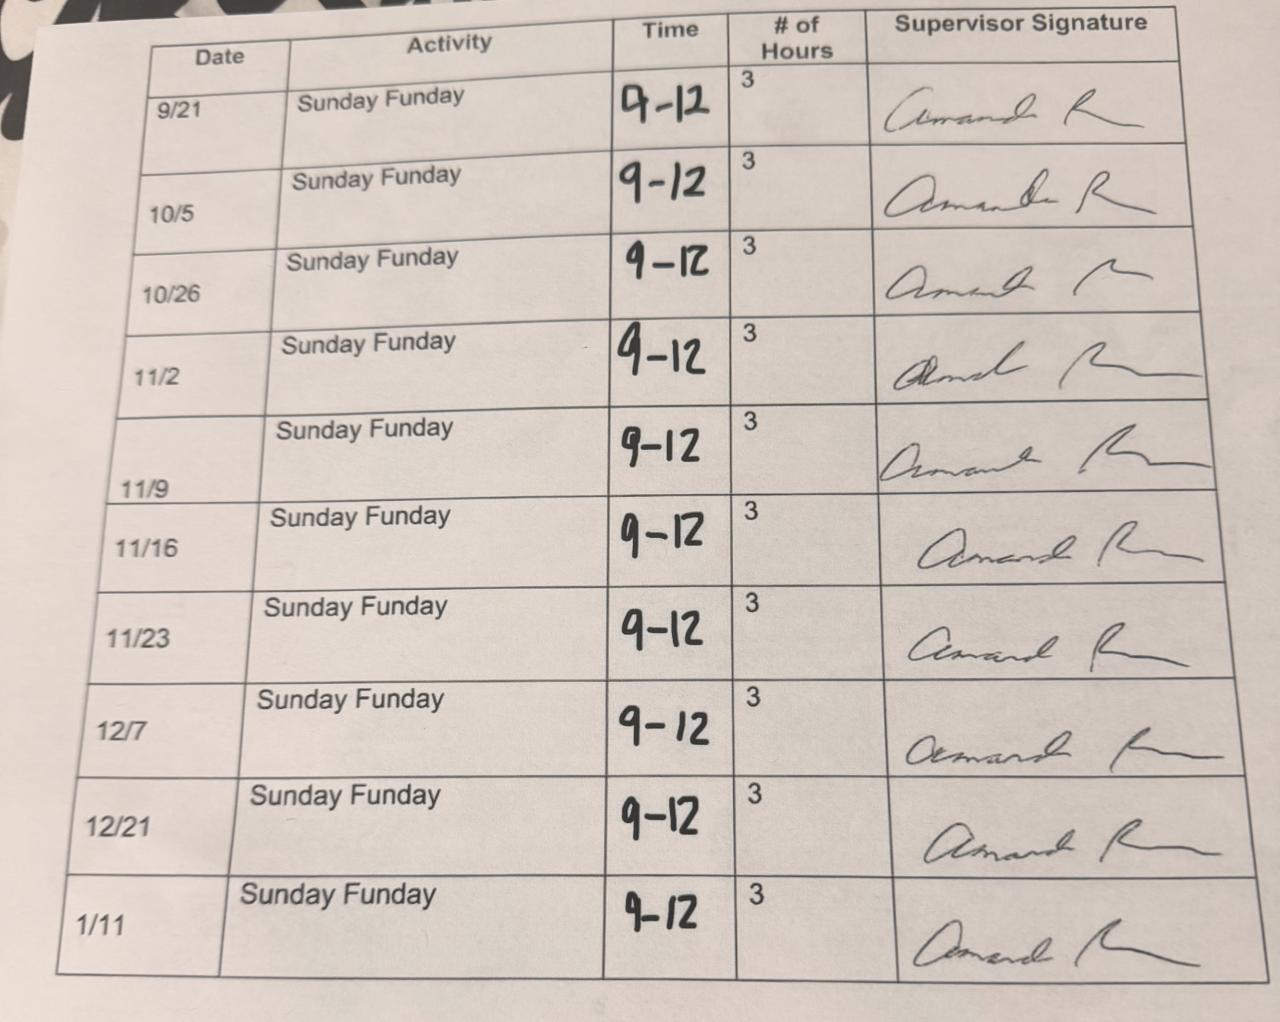 Date Activity Time # of Hours Supervisor Signature
9/21 Sunday Funday 9-12 3 Amanda R
10/5 Sunday Funday 9-12 3 Amanda R
10/26 Sunday Funday 9-12 3 Amand R
11/2 Sunday Funday 9-12 3 Amand R
11/9 Sunday Funday 9-12 3 Amanda R
11/16 Sunday Funday 9-12 3 Amand R
11/23 Sunday Funday 9-12 3 Amand R
12/7 Sunday Funday 9-12 3 Amand R
12/21 Sunday Funday 9-12 3 Amand R
1/11 Sunday Funday 9-12 3 Amand R